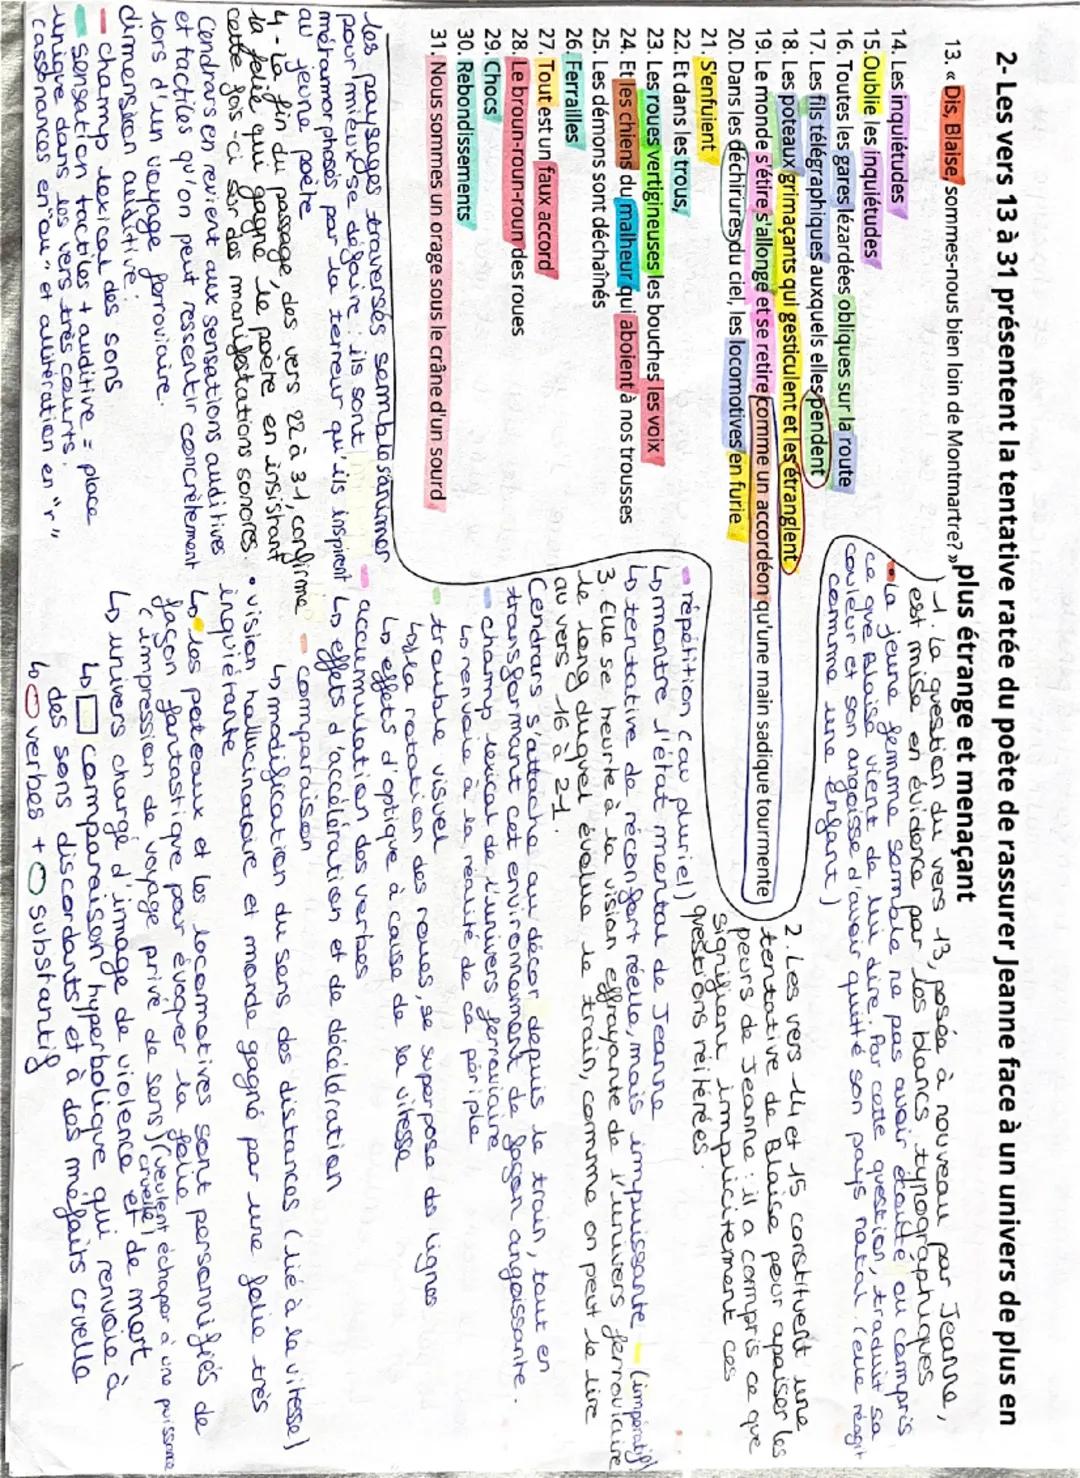 2- Les vers 13 à 31 présentent la tentative ratée du poète de rassurer Jeanne face à un univers de plus en
plus étrange et menaçant
13. « Dis, Blaise, sommes-nous bien loin de Montmartre? »
14. Les inquiétudes
15.Oublie les inquiétudes
16. Toutes les gares lézardées obliques sur la route
17. Les fils télégraphiques auxquels elles pendent
18. Les poteaux grimaçants qui gesticulent et les étranglent
19. Le monde s'étire s'allonge et se retire comme un accordéon qu'une main sadique tourmente
20. Dans les déchirures du ciel, les locomotives en furie
21. S'enfuient
22. Et dans les trous,
23. Les roues vertigineuses les bouches les voix
24. Et les chiens du malheur qui aboient à nos trousses
25. Les démons sont déchaînés
26. Ferrailles
27. Tout est un faux accord
28. Le broun-roun-roun des roues
29. Chocs
30. Rebondissements
31. Nous sommes un orage sous le crâne d'un sourd
1. La question du vers 13, posée à nouveau par Jeanne,
est mise en évidence par les blancs typographiques
La jeune femme semble ne pas avoir écouté ou compris
ce que Blaise vient de lui dire. Par cette question, traduit sa
couleur et son angoisse d'avoir quitté son pays natal. (elle réagit
comme une enfant)
2. Les vers 14 et 15 constituent une
tentative de Blaise pour apaiser les
peurs de Jeanne : il a compris ce que
signifient implicitement ces
questions réitérées.
répétition (au pluriel)
↳ montre l'état mental de Jeanne
↳ tentative de réconfort réelle, mais impuissante (impératif)
3. Elle se heurte à la vision effrayante de l'univers ferroviaire
le long duquel évolue le train, comme on peut le lire
au vers 16 à 21.
Cendrars s'attache au décor depuis le train, tout en
transformant cet environnement de façon angoissante.
champ lexical de l'univers ferroviaire
↳ renvoie à la réalité de ce périple
trouble visuel
↳ la rotation des roues, se superpose des lignes
↳ effets d'optique à cause de la vitesse
accumulation des verbes
↳ effets d'accélération et de décélération
comparaison
↳ modification du sens des distances (lié à la vitesse)
• vision hallucinatoire et monde gagné par une folie très
inquiétante
↳ les poteaux et les locomotives sont personnifiés de
façon fantastique pour évoquer la folie
(impression de voyage privé de sens) (veulent échaper à une puissance
cruelle)
↳ univers chargé d'image de violence et de mort
↳ comparaison hyperbolique qui renvoie à
des sons discordants et à des mefaits cruelle
↳ verbes + substantif
les paysages traversés semble s'animer
pour mieux se défaire : ils sont
métamorphosés par la terreur qu'ils inspirent
au jeune poète
4 - La fin du passage, des vers 22 à 31, confirme
la folie qui gagne, le poère en insistant
cette fois-ci sur des manifestations sonores.
Cendrars en revient aux sensations auditives
et tactiles qu'on peut ressentir concrètement
lors d'un voyage ferroviaire.
dimension auditive :
champ lexical des sons
sensation tactiles + auditive = place
unique dans les vers très courts.
(assonances en "ou" et allitération en "r"